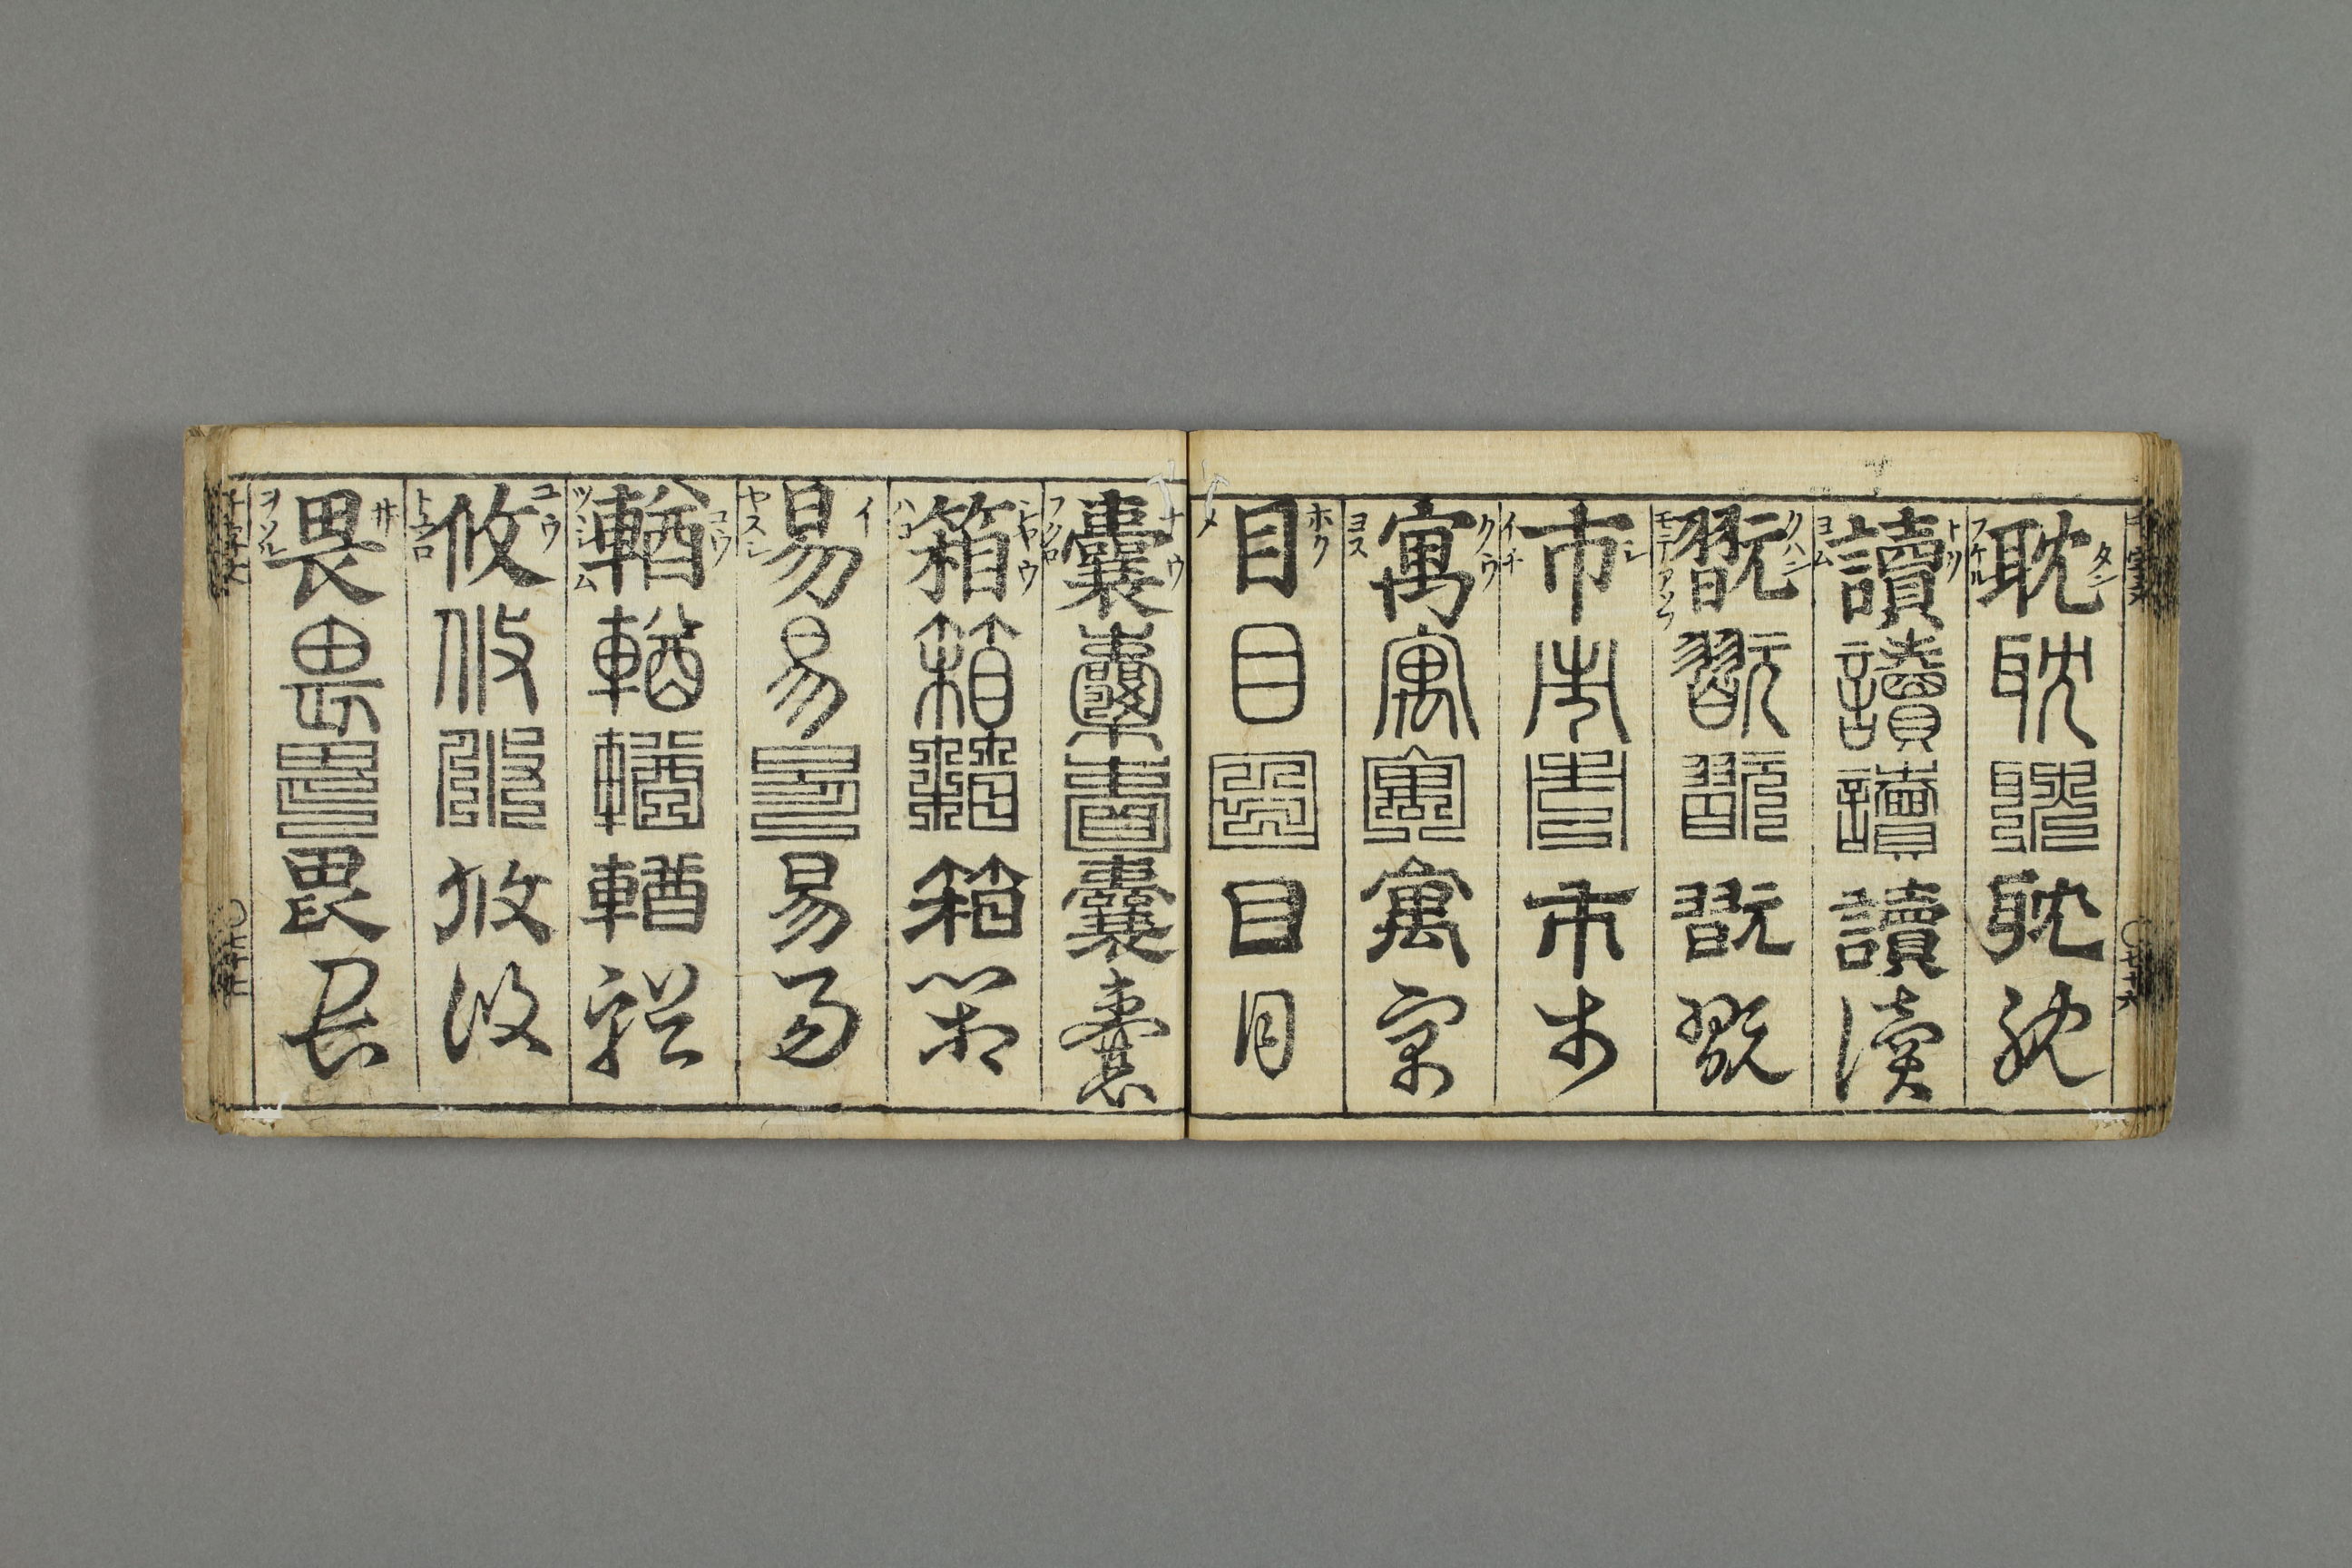 タン
耽耽耽耽耽
フケル
トツ
讀讀讀讀讀
ヨム
クハン
翫翫翫翫翫
モテアソフ
シ
市市市市市
イチ
クウ
寓寓寓寓寓
ヨス
ホク
目目目目目
メ
ナウ
囊囊囊囊囊
フクロ
シヤウ
箱箱箱箱箱
ハコ
イ
易易易易易
ヤスシ
ユウ
輶輶輶輶輶
ユウ
攸攸攸攸攸
トコロ
井
畏畏畏畏畏
ヲソル